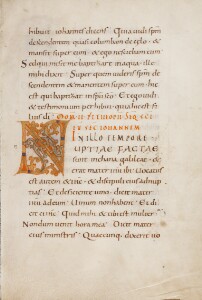 hibuit iohannes dicens Quia uidi spm
descendentem quasi columbam de celo &
mansit super eum & ego nesciebam eum
Sed qui misit me baptizare in aqua ille
mihi dixit Super quem uideris spm de
scendentem & manentem super eum hic
est qui baptizat in spu sco Et ego uidi
& testimonium perhibui quia hic est fi
lius di
IN ILLO TEMPORE
NUPTIAE FACTAE
sunt in chana galileae &
erat mater ihu ibi Uocatus
est autem & ihs & discipuli eius ad nup
tias Et deficiente uino dicit mater
ihu ad eum Uinum non habent Et di
cit ei ihs Quid mihi & tibi est mulier
Nondum uenit hora mea Dicit mater
eius ministris Quaecumq dixerit uo